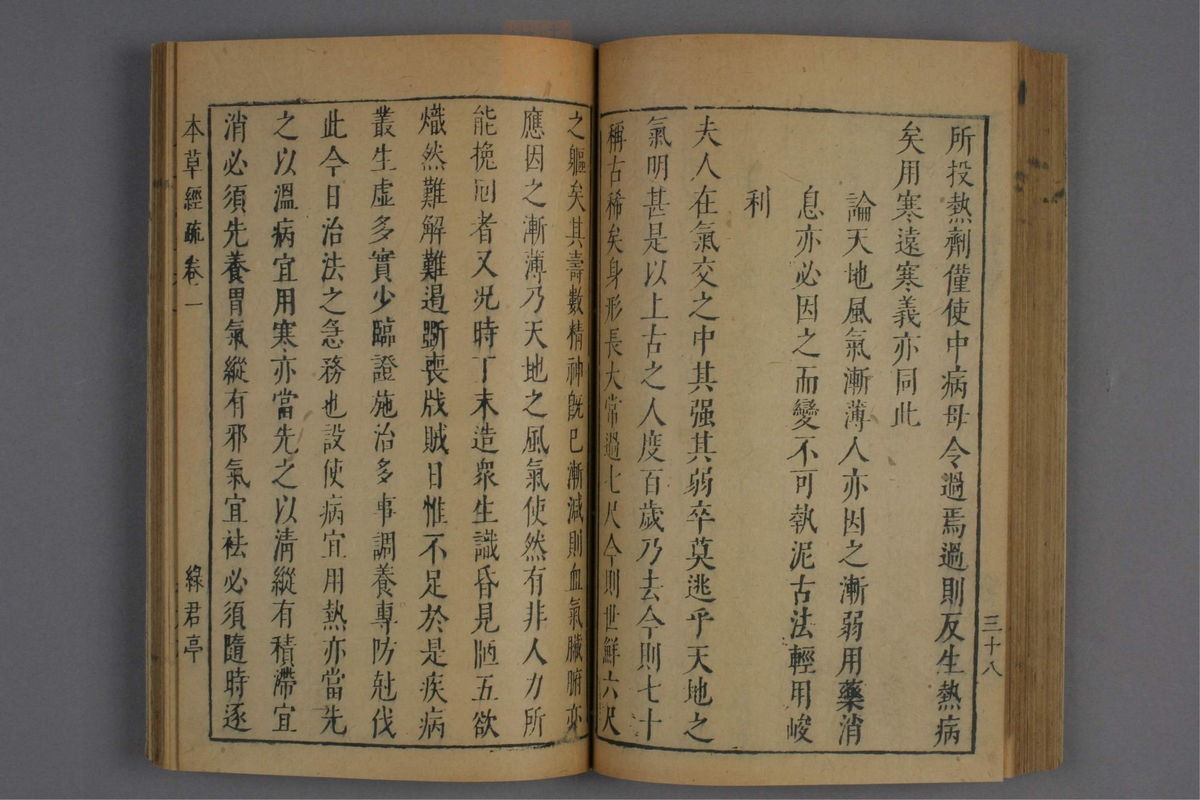 三十八
所投熱劑僅使中病毋令過焉過則反生熱病
矣用寒遠寒義亦同此
論天地風氣漸薄人亦因之漸弱用藥消
息亦必因之而變不可執泥古法輕用峻
利
夫人在氣交之中其强其弱卒莫逃乎天地之
氣明甚是以上古之人度百歲乃去今則七十
稱古稀矣身形長大常過七尺今則世鮮六尺
之軀矣其壽數精神旣已漸減則血氣臟腑亦
應因之漸薄乃天地之風氣使然有非人力所
能挽囘者又况時丁末造衆生識昏見陋五欲
熾然難解難遏斲喪戕賊日惟不足於是疾病
叢生虛多實少臨證施治多事調養專防尅伐
此今日治法之急務也設使病宜用熱亦當先
之以溫病宜用寒亦當先之以清縱有積滯宜
消必須先養胃氣縱有邪氣宜祛必須隨時逐
本草經疏 卷一 綠君亭